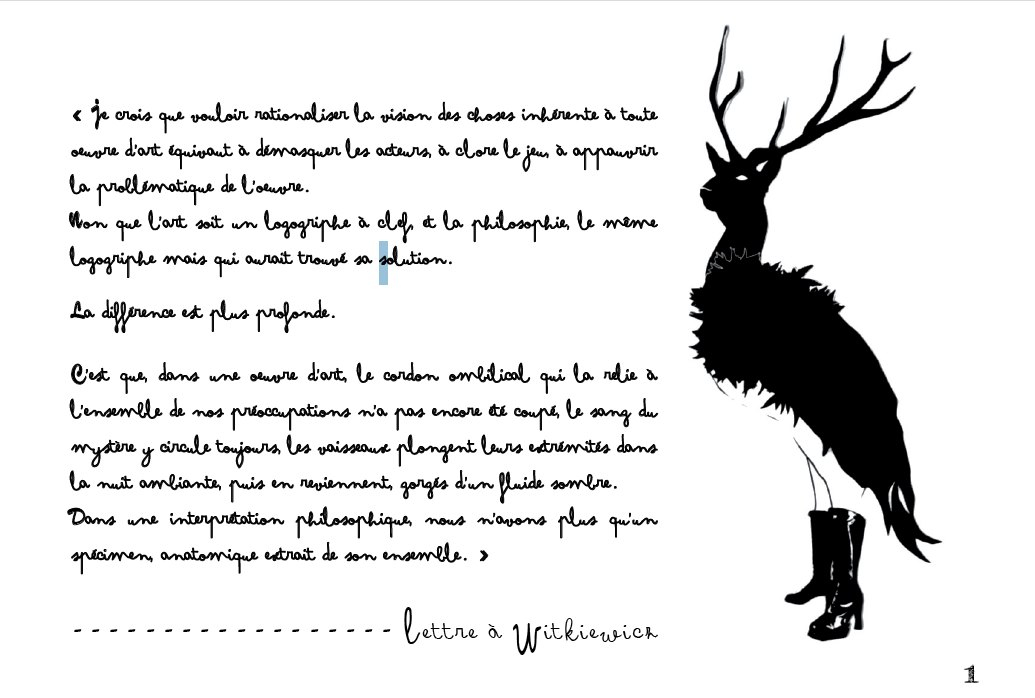 « Je crois que vouloir rationaliser la vision des choses inhérente à toute
oeuvre d'art équivaut à démasquer les acteurs, à clore le jeu, à appauvrir
la problématique de l'oeuvre.
Non que l'art soit un logogriphe à clef, et la philosophie, le même
logogriphe mais qui aurait trouvé sa solution.
La différence est plus profonde.
C'est que, dans une oeuvre d'art, le cordon ombilical qui la relie à
l'ensemble de nos préoccupations n'a pas encore été coupé, le sang du
mystère y circule toujours, les vaisseaux plongent leurs extrémités dans
la nuit ambiante, puis en reviennent, gorgés d'un fluide sombre.
Dans une interprétation philosophique, nous n'avons plus qu'un
spécimen, anatomique extrait de son ensemble. »
- - - - - - - - - - - - - - - - - - Lettre à Witkiewicz
1